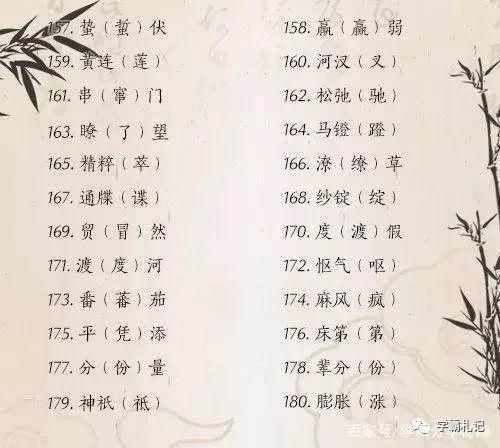 157. 蛰（蜇）伏 158. 羸（赢）弱
159. 黄连（莲） 160. 河汊（叉）
161. 串（窜）门 162. 松弛（驰）
163. 瞭（了）望 164. 马镫（蹬）
165. 精粹（萃） 166. 潦（缭）草
167. 通牒（谍） 168. 纱锭（绽）
169. 贸（冒）然 170. 度（渡）假
171. 渡（度）河 172. 怄气（呕）
173. 番（蕃）茄 174. 麻风（疯）
175. 平（凭）添 176. 床笫（第）
177. 分（份）量 178. 辈分（份）
179. 神祇（祗） 180. 膨胀（涨）
百家号/
学霸札记